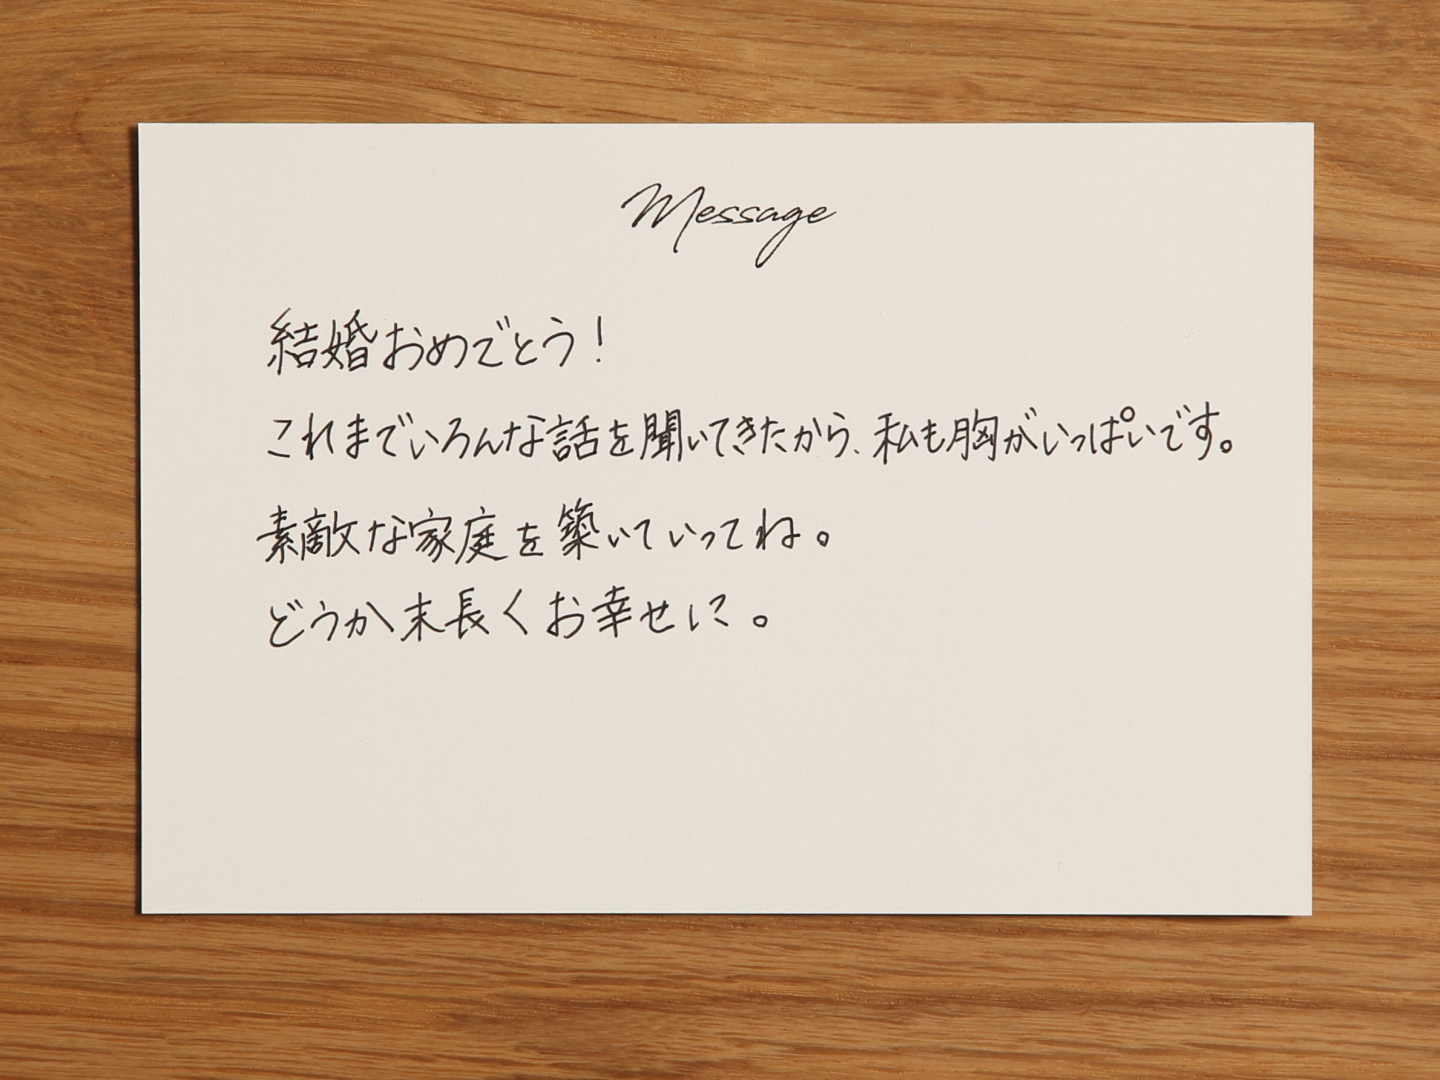 Message
結婚おめでとう!
これまでいろんな話を聞いてきたから、私も胸がいっぱいです。
素敵な家庭を築いていってね。
どうか末長くお幸せに。